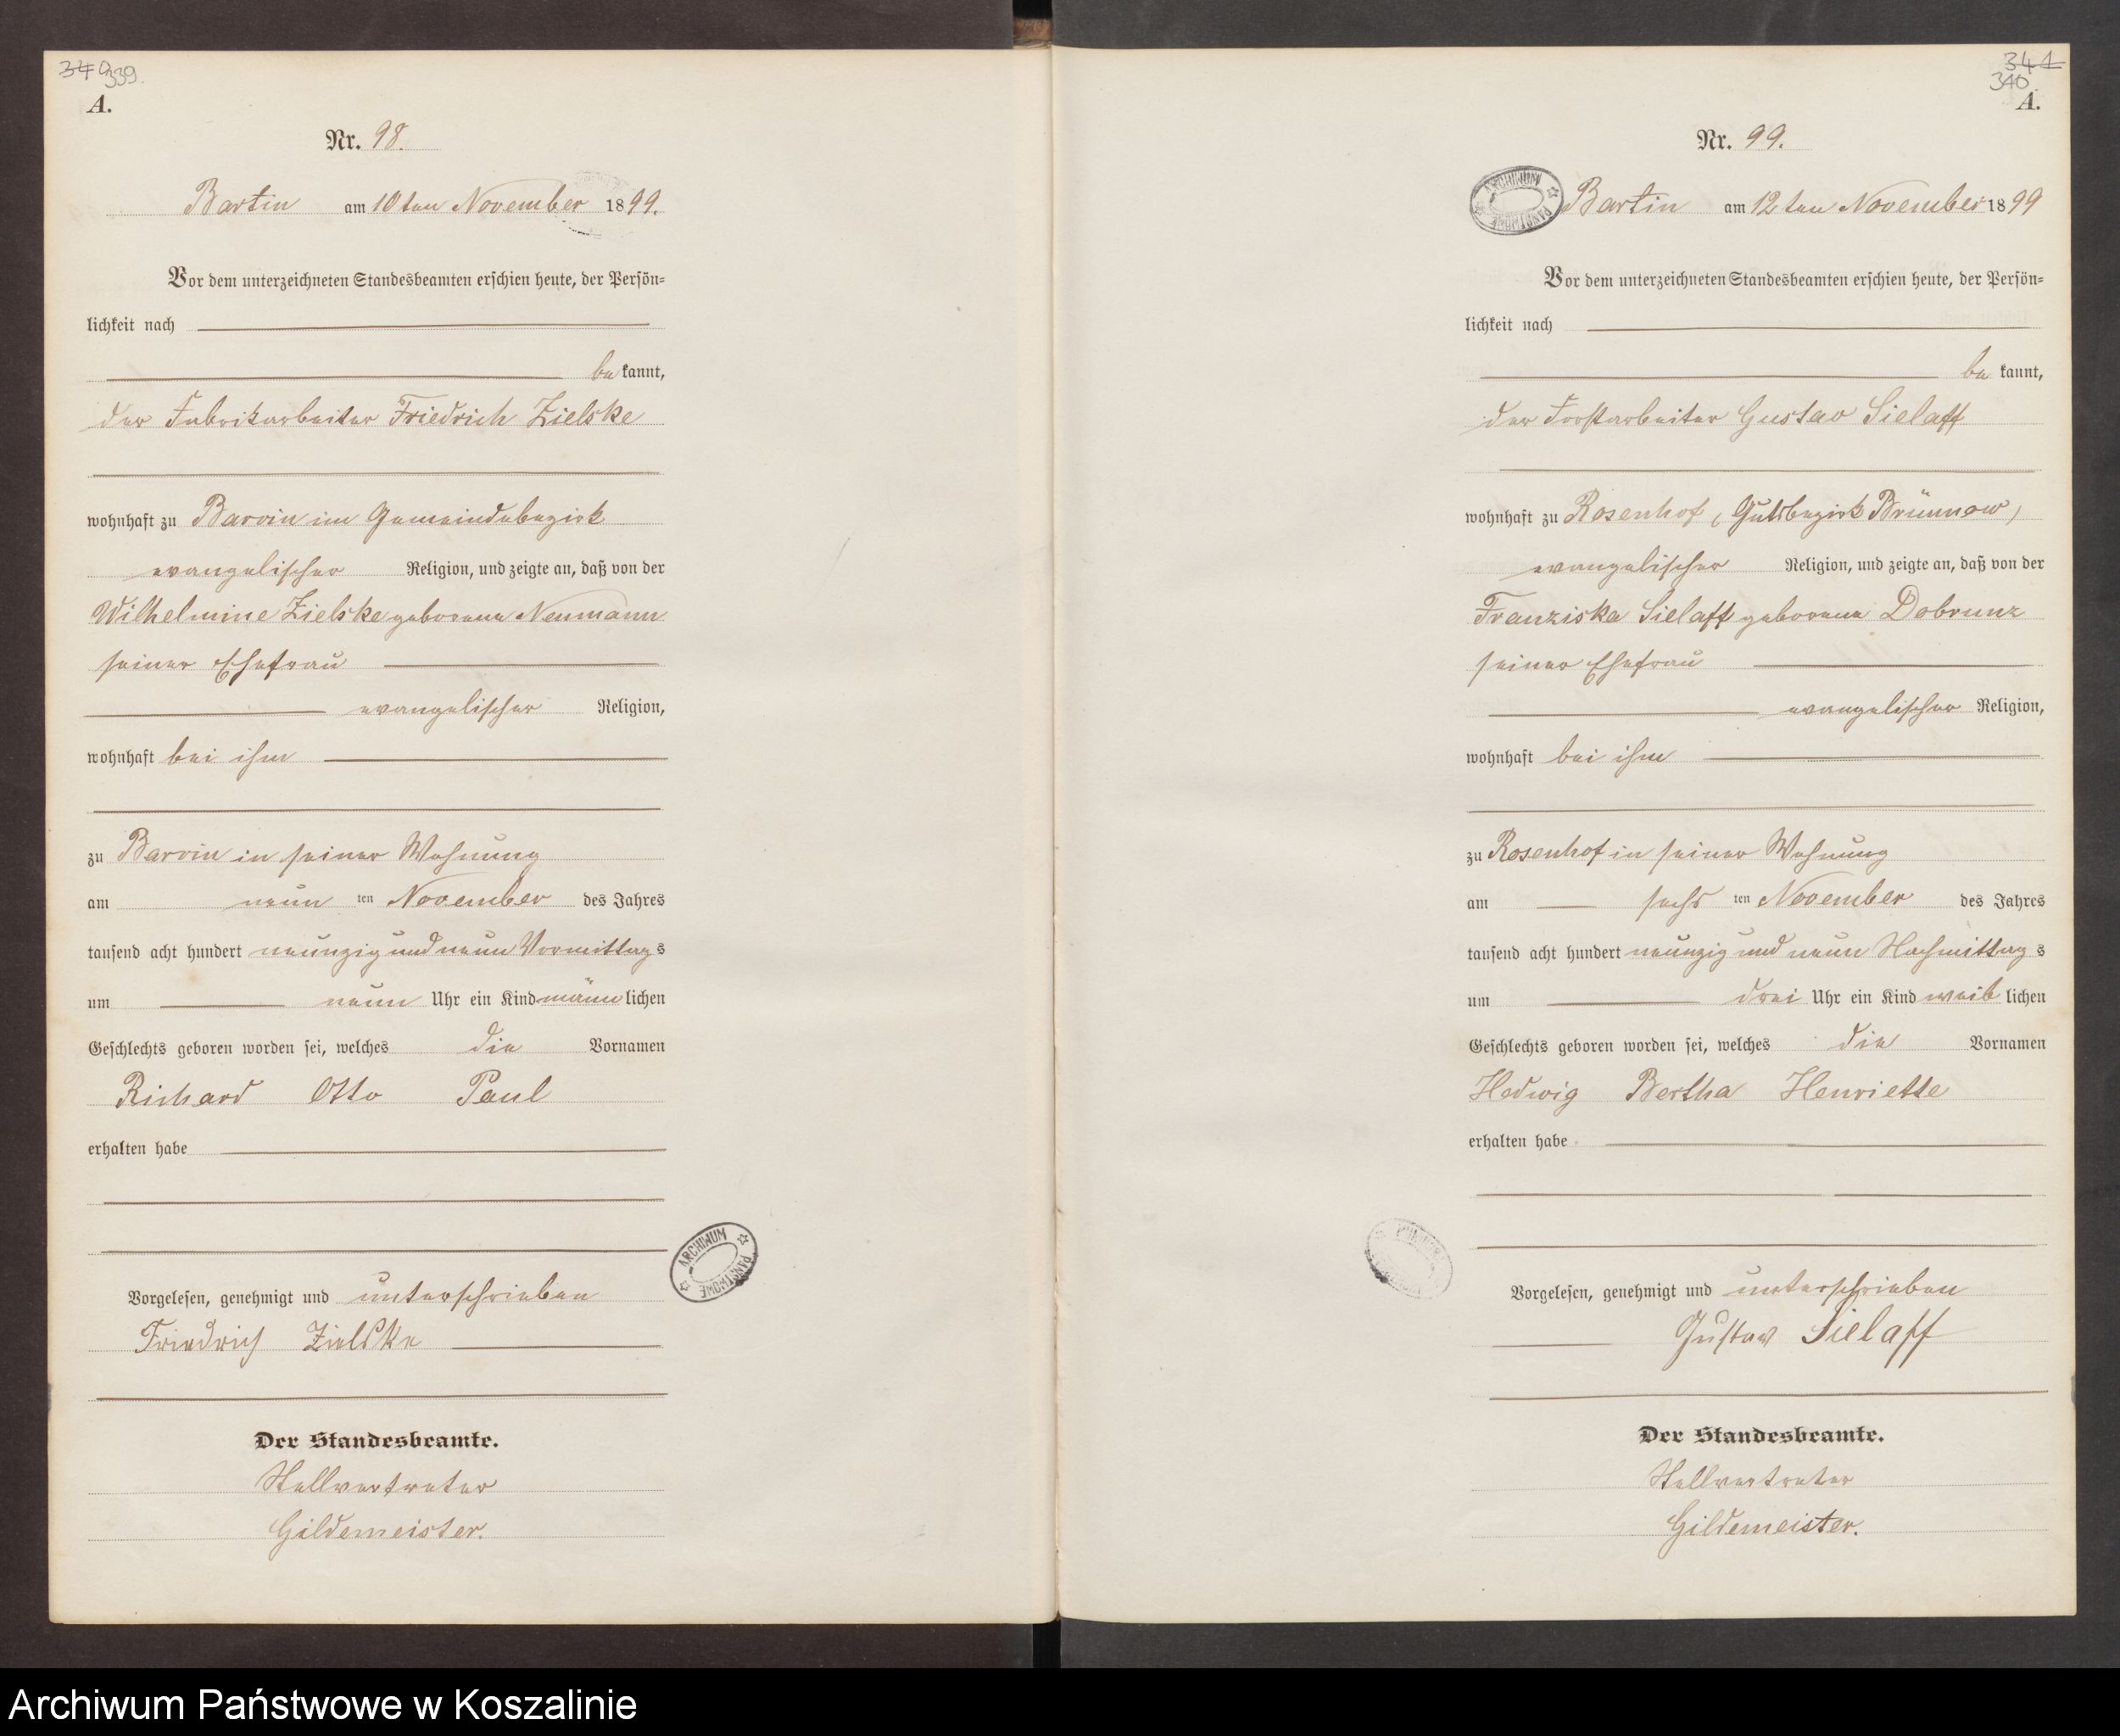 340 339.
A.
Nr. 98.
Bartin am 10ten November 1899.
Vor dem unterzeichneten Standesbeamten erschien heute, der Persön=
lichkeit nach
bekannt,
der Fabrikarbeiter Friedrich Zielske
wohnhaft zu Barvin im Gemeindebezirk
evangelischer Religion, und zeigte an, daß von der
Wilhelmine Zielske geborene Neumann
seiner Ehefrau
evangelischer Religion,
wohnhaft bei ihm
zu Barvin in seiner Wohnung
am neun ten November des Jahres
tausend acht hundert neunzig und neun Vormittags
um neun Uhr ein Kind männlichen
Geschlechts geboren worden sei, welches die Vornamen
Richard Otto Paul
erhalten habe
ARCHIWUM PAŃSTWOWE
Vorgelesen, genehmigt und unterschrieben
Friedrich Zielske
Der Standesbeamte.
Stellvertreter
Gildemeister.
341
340
A.
Nr. 99.
ARCHIWUM PAŃSTWOWE
Bartin am 12ten November 1899
Vor dem unterzeichneten Standesbeamten erschien heute, der Persön=
lichkeit nach
bekannt,
der Forstarbeiter Gustav Sielaff
wohnhaft zu Rosenhof, (Gutsbezirk Brünnow)
evangelischer Religion, und zeigte an, daß von der
Franziska Sielaff geborene Dobrunz
seiner Ehefrau
evangelischer Religion,
wohnhaft bei ihm
zu Rosenhof in seiner Wohnung
am sechs ten November des Jahres
tausend acht hundert neunzig und neun Nachmittags
um drei Uhr ein Kind weiblichen
Geschlechts geboren worden sei, welches die Vornamen
Hedwig Bertha Henriette
erhalten habe
Vorgelesen, genehmigt und unterschrieben
Gustav Sielaff
Der Standesbeamte.
Stellvertreter
Gildemeister.
Archiwum Państwowe w Koszalinie